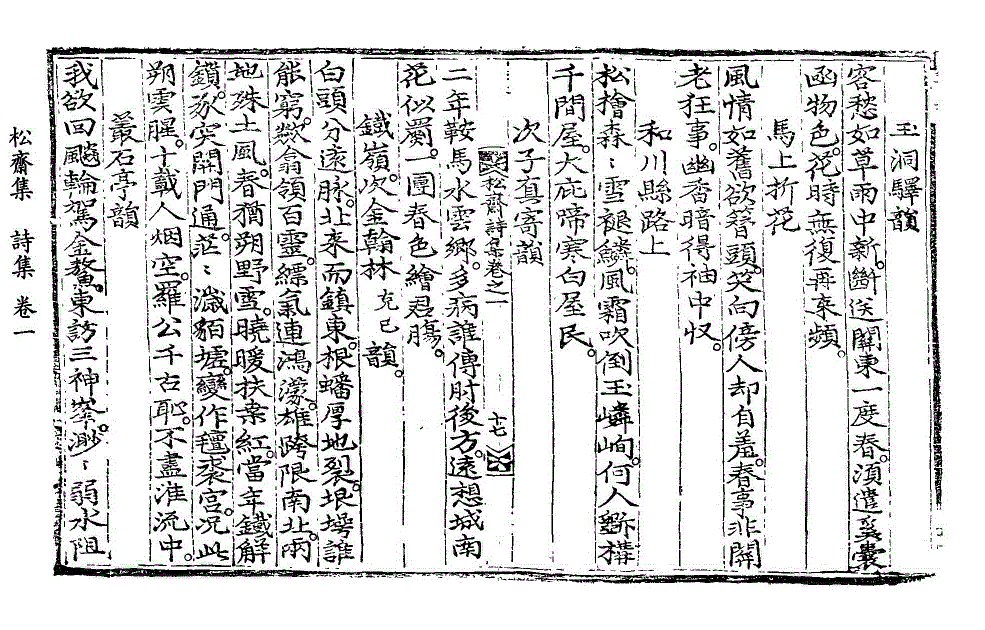 玉洞驛韻
客愁如草雨中新。斷送關東一度春。須遣奚囊
函物色。花時無復再來頻。
馬上折花
風情如舊欲簪頭。笑向傍人却自羞。春事非關
老狂事。幽香暗得袖中收。
和川縣路上
松檜森〻雪褪鱗。風霜吹倒玉嶙峋。何人斵構
千間屋。大庇啼寒白屋民。
次子眞寄韻
松齋詩集卷之一 十七
二年鞍馬水雲鄕。多病誰傳肘後方。遠想城南
花似罽。一團春色繪君膓。
鐵嶺。次金翰林 克己 韻。
白頭分遠脉。北來而鎭東。根蟠厚地裂。垠堮誰
能窮。歘翕領百靈。縹氣連鴻濛。雄跨限南北。兩
地殊土風。春猶朔野雪。曉暖扶桑紅。當年鐵解
鎖。豗突關門通。茫〻濊貊墟。變作氊裘宮。况此
朔雲腥。十載人烟空。羅公千古耻。不盡淮流中。
叢石亭韻
我欲回飈輪駕金鰲。東訪三神峯。渺〻弱水阻
松齋集 詩集 卷一